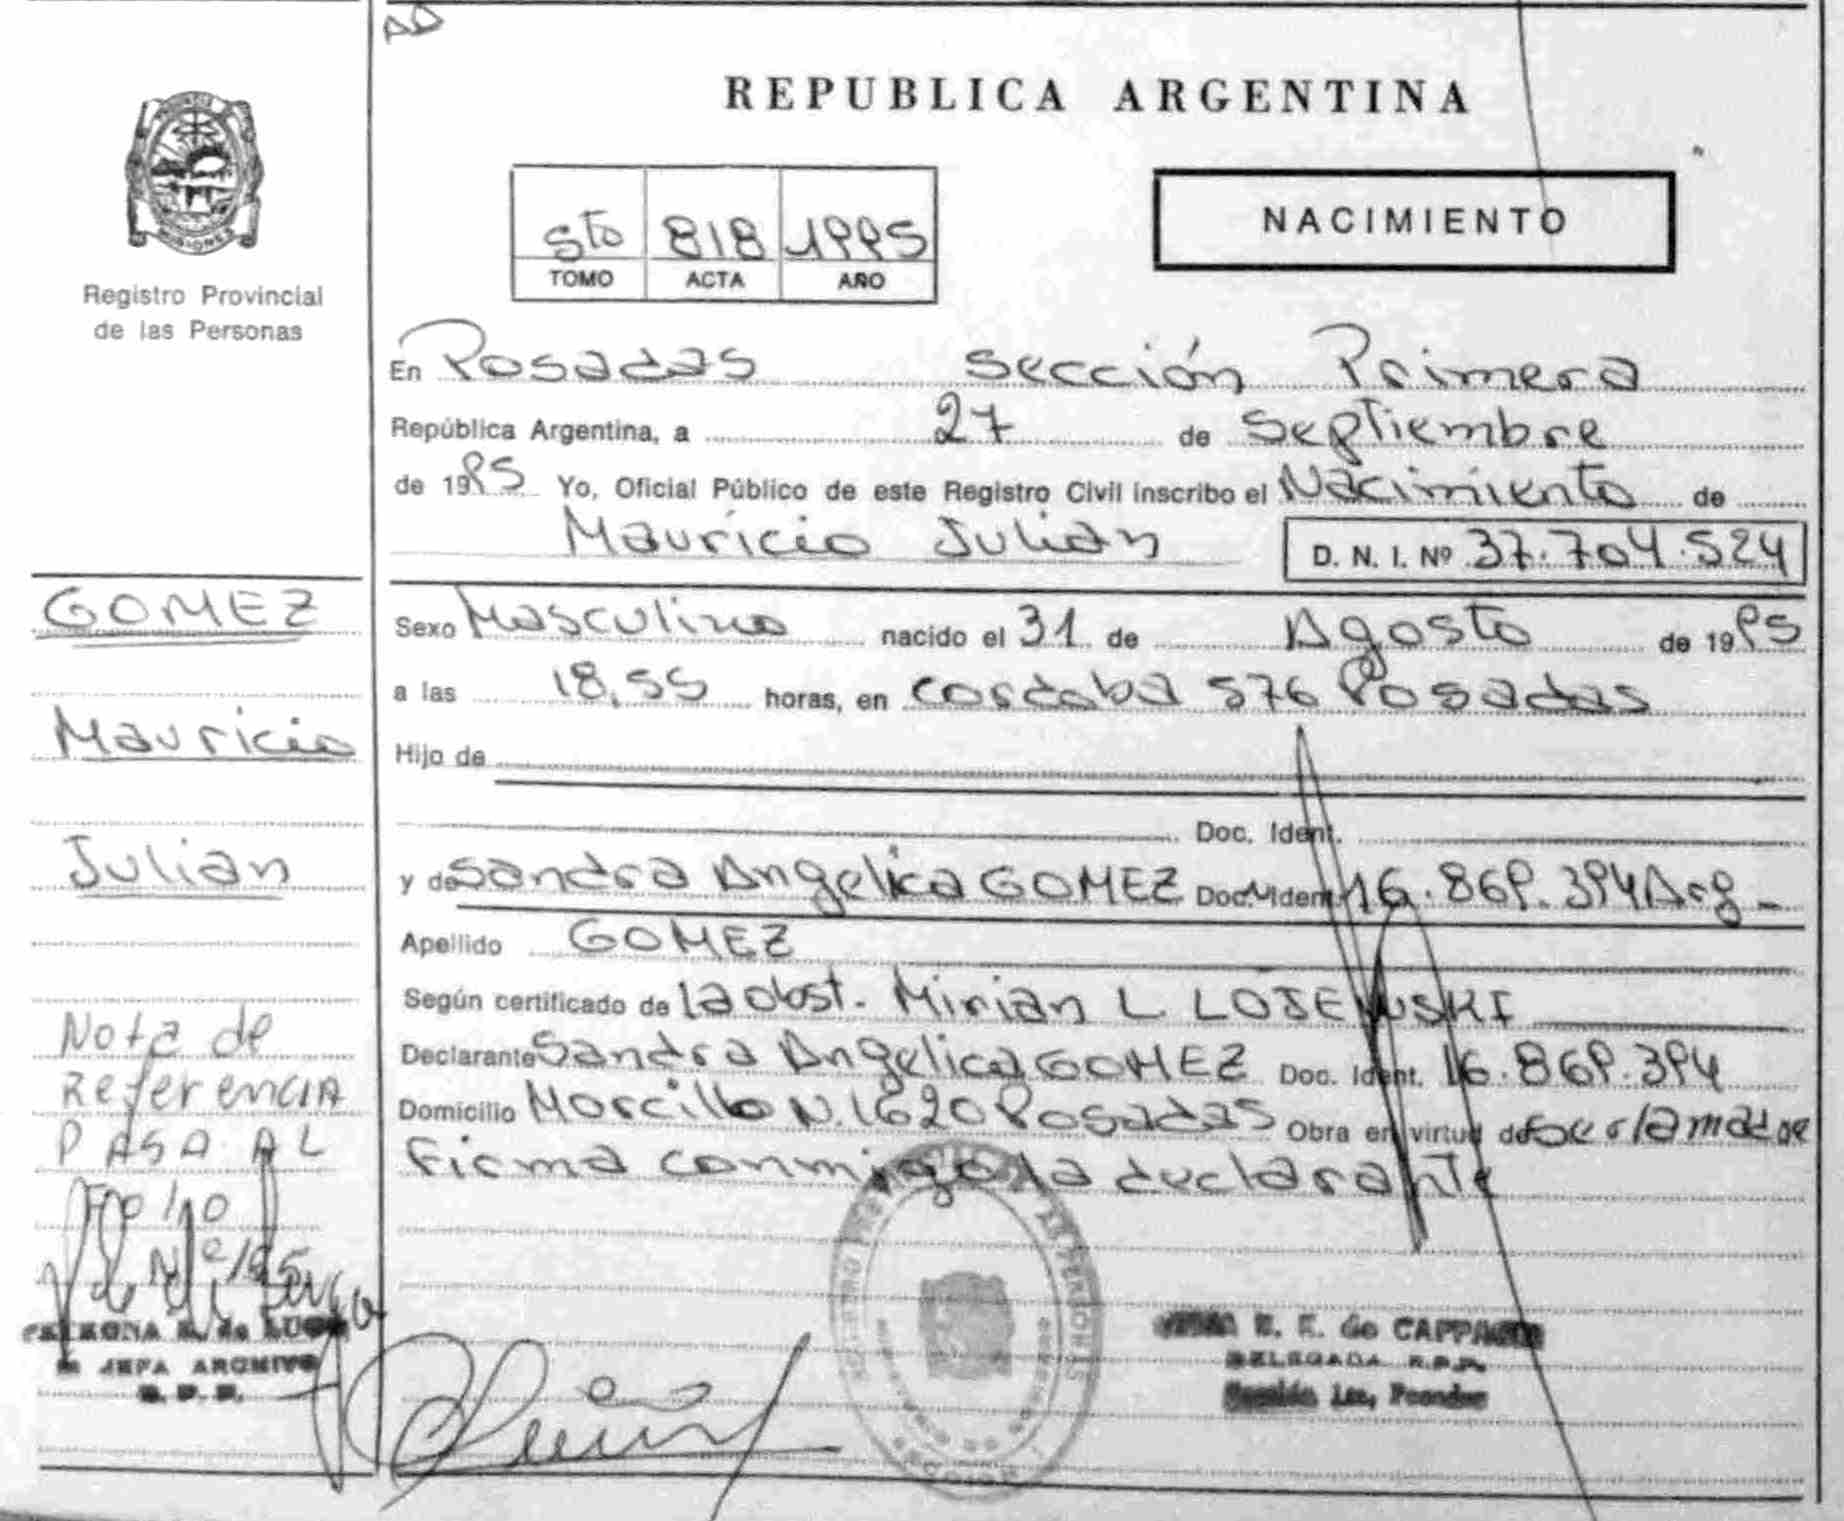 REPUBLICA ARGENTINA
MISIONES
Registro Provincial
de las Personas
5to 818 1995
TOMO ACTA AÑO
NACIMIENTO
En Posadas Sección Primera
República Argentina, a 27 de Septiembre
de 1995 Yo, Oficial Público de este Registro Civil inscribo el Nacimiento de
Mauricio Julian D. N. I. Nº 37.704.524
Sexo Masculino nacido el 31 de Agosto de 1995
a las 18,55 horas, en cordoba 576 Posadas
Hijo de
Doc. Ident.
y de Sandra Angelica GOMEZ Doc. Ident. 16.869.394 Arg
Apellido GOMEZ
Según certificado de la obst. Mirian L LOJEWSKI
Declarante Sandra Angelica GOMEZ Doc. Ident. 16.869.394
Domicilio Morcillo N.1620 Posadas Obra en virtud de ser la madre
Firma conmigo la declarante
GOMEZ
Mauricio
Julian
Nota de
Referencia
PASA AL
Fº 110
JEFA ARCHIVO
R. P. P.
E. E. de
DELEGADA R.P.P.
Sección 1ra, Posadas